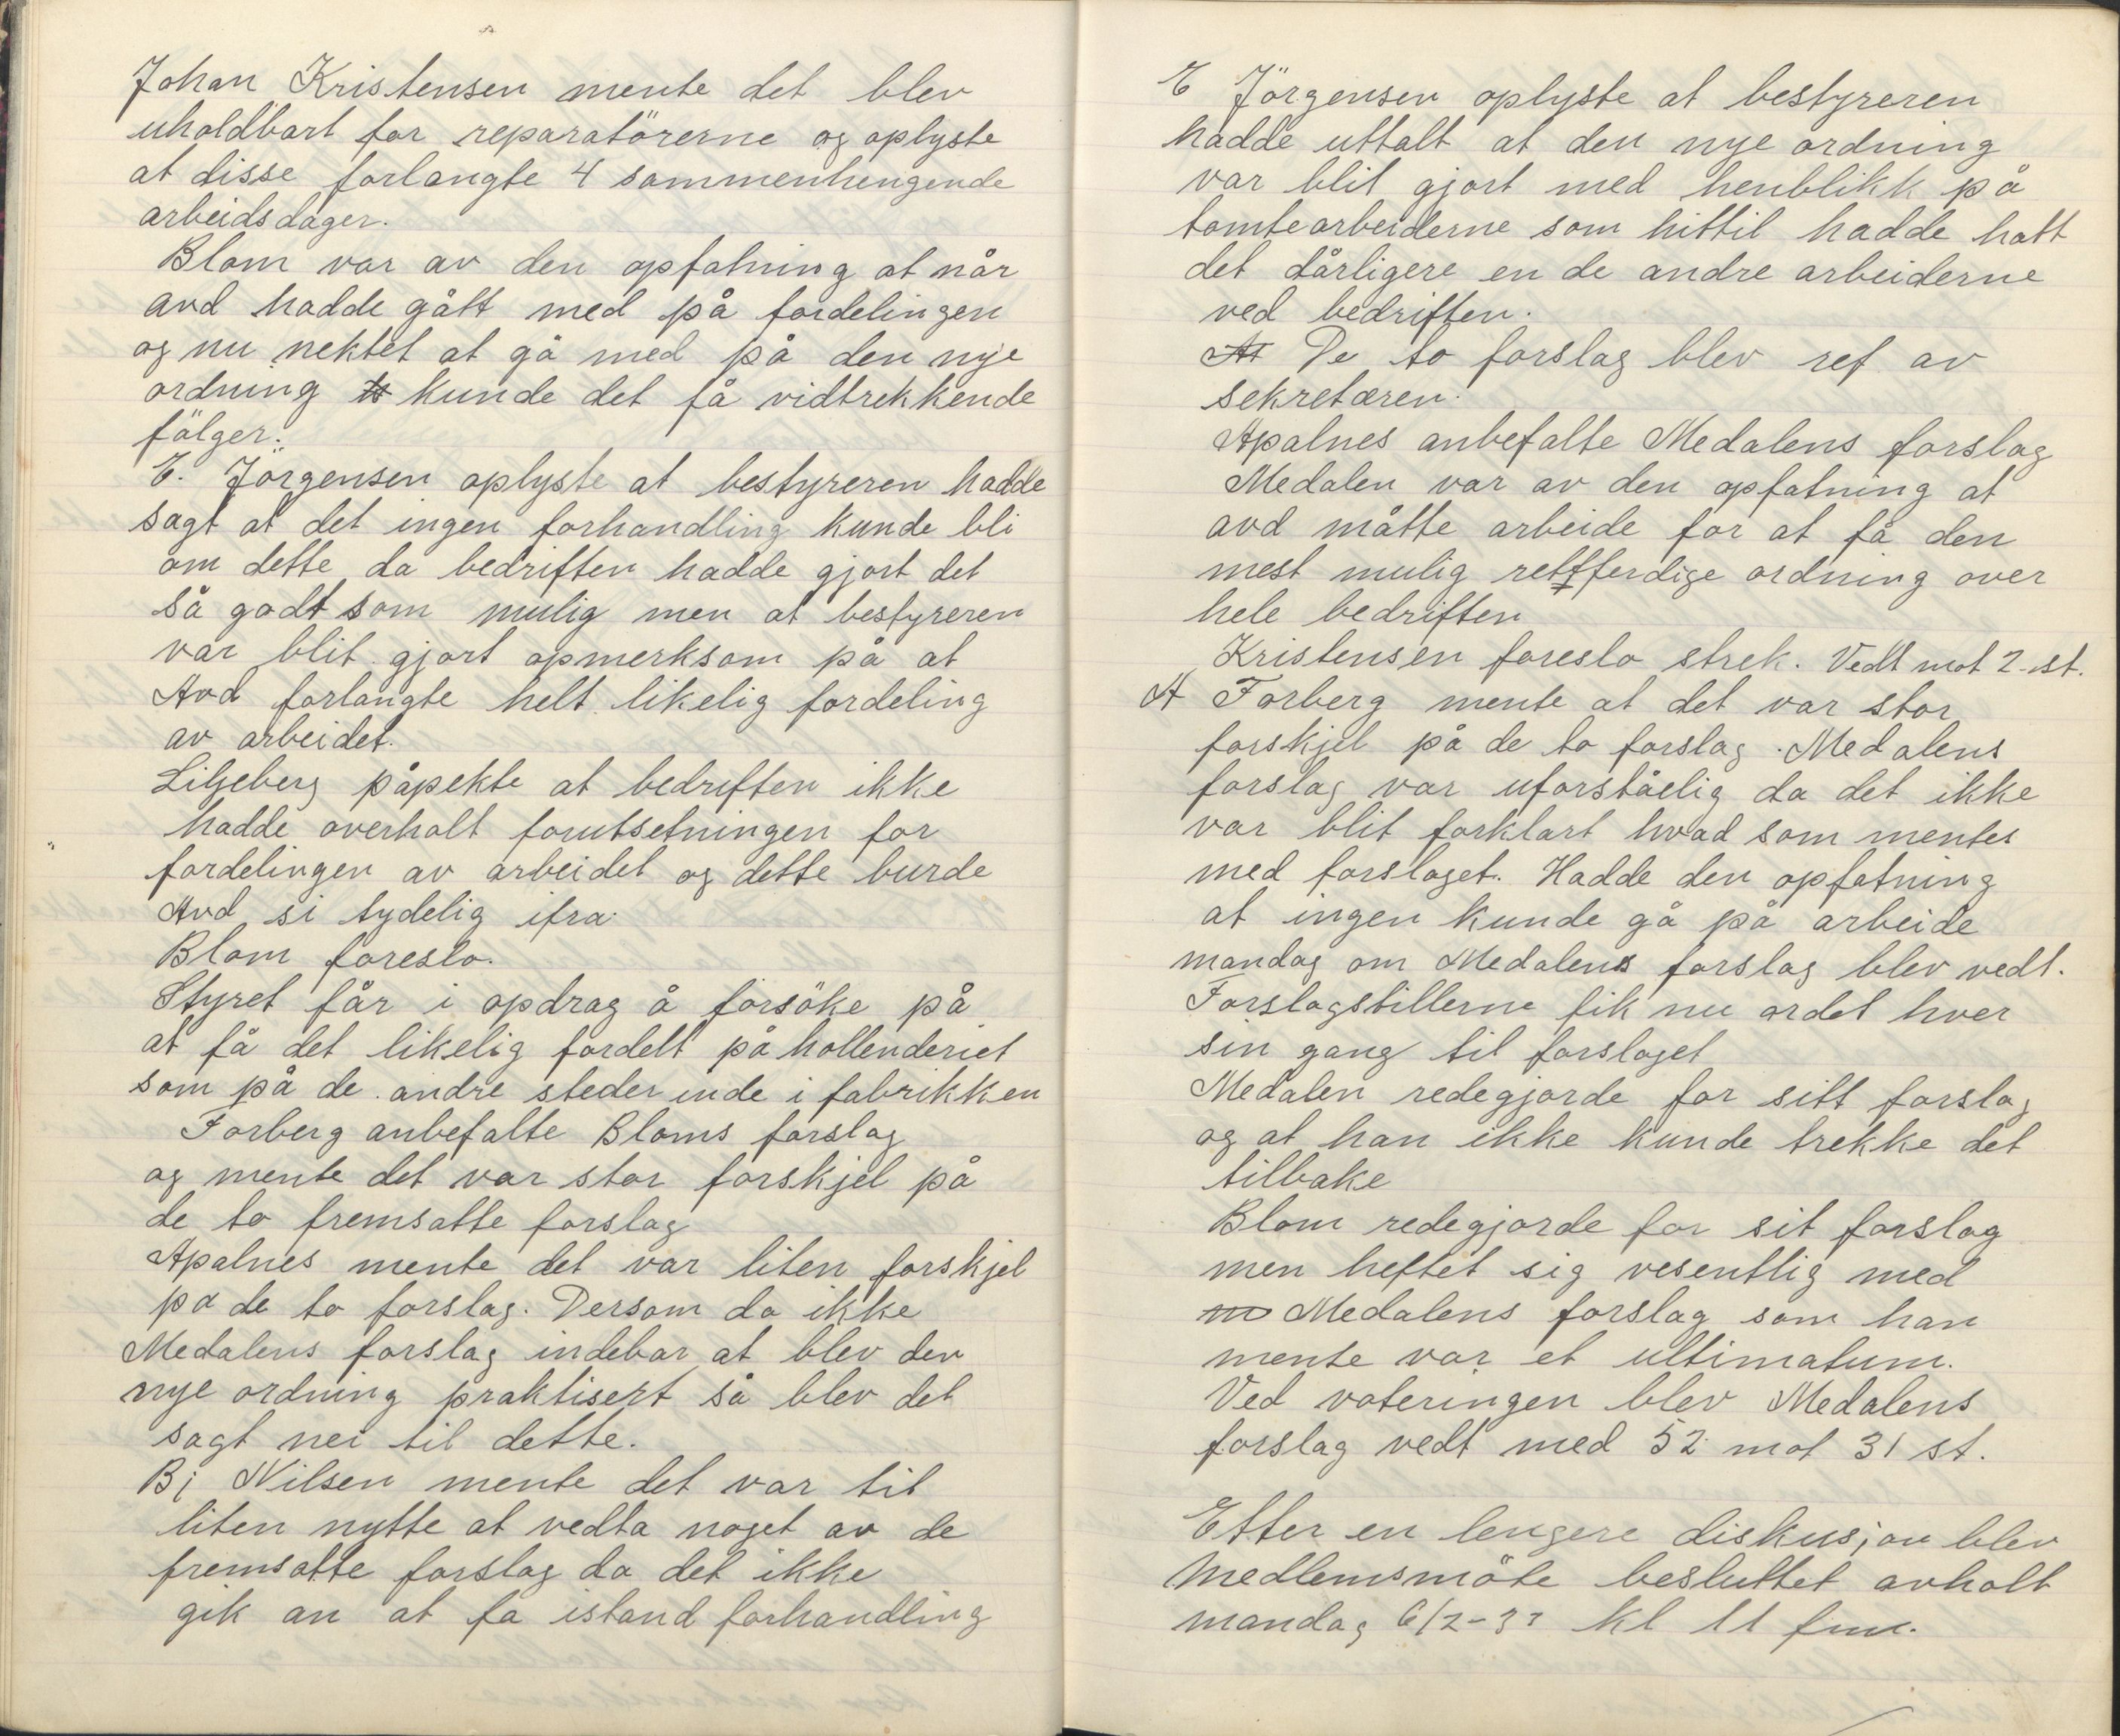 Johan Kristensen mente det blev
uholdbart for reparatörerne og oplyste
at disse forlangte 4 sammenhengende
arbeidsdager.
Blom var av den opfatning at når
avd hadde gått med på fordelingen
og nu nektet at gå med på den nye
ordning kunde det få vidtrekkende
fölger.
E. Jörgensen oplyste at bestyreren hadde
sagt at det ingen forhandling kunde bli
om dette da bedriften hadde gjort det
så godt som mulig men at bestyreren
var blit gjort opmerksom på at
Avd forlangte helt likelig fordeling
av arbeidet.
Liljeberg påpekte at bedriften ikke
hadde overholt forutsetningen for
fordelingen av arbeidet og dette burde
Avd si tydelig ifra.
Blom foreslo.
Styret får i opdrag å forsöke på
at få det likelig fordelt på hollenderiet
som på de andre steder inde i fabrikken
Forberg anbefalte Bloms forslag
og mente det var stor forskjel på
de to fremsatte forslag
Apalnes mente det var liten forskjel
på de to forslag. Dersom da ikke
Medalens forslag indebar at blev den
nye ordning praktisert så blev det
sagt nei til dette.
Bj Nilsen mente det var til
liten nytte at vedta noget av de
fremsatte forslag da det ikke
gik an at fa istand forhandling
E Jörgensen oplyste at bestyreren
hadde uttalt at den nye ordning
var blit gjort med henblikk på
tomtearbeiderne som hittil hadde hatt
det dårligere en de andre arbeiderne
ved bedriften.
At De to forslag blev ref av
sekretæren.
Apalnes anbefalte Medalens forslag
Medalen var av den opfatning at
avd måtte arbeide for at få den
mest mulig rettferdige ordning over
hele bedriften
Kristensen foreslo strek. Vedt mot 2 st.
A Forberg mente at det var stor
forskjel på de to forslag. Medalens
forslag var uforståelig da det ikke
var blit forklart hvad som mentes
med forslaget. Hadde den opfatning
at ingen kunde gå på arbeide
mandag om Medalens forslag blev vedt.
Forslagstillerne fik nu ordet hver
sin gang til forslaget
Medalen redegjorde for sitt forslag
og at han ikke kunde trekke det
tilbake
Blom redegjorde for sit forslag
men heftet sig vesentlig med
m Medalens forslag som han
mente var et ultimatum.
Ved voteringen blev Medalens
forslag vedt med 52 mot 31 st.
Etter en lengere diskusjon blev
medlemsmöte besluttet avholt
mandag 6/2-33 kl 11 fm.